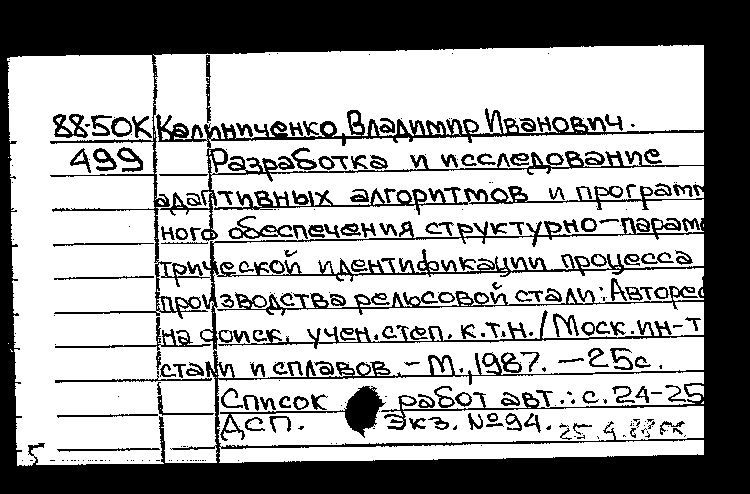 88-50К Калиниченко, Владимир Иванович.
499 Разработка и исследование
адаптивных алгоритмов и программ
ного обеспечения структурно-парам
трической идентификации процесса
производства рельсовой стали: Авторе
на соиск. учен. степ. к.т.н. / Моск. ин-т
стали и сплавов. - М., 1987. - 25с.
Список работ авт.: с. 24-25
ДСП. Экз. №94. 25.4.88
5